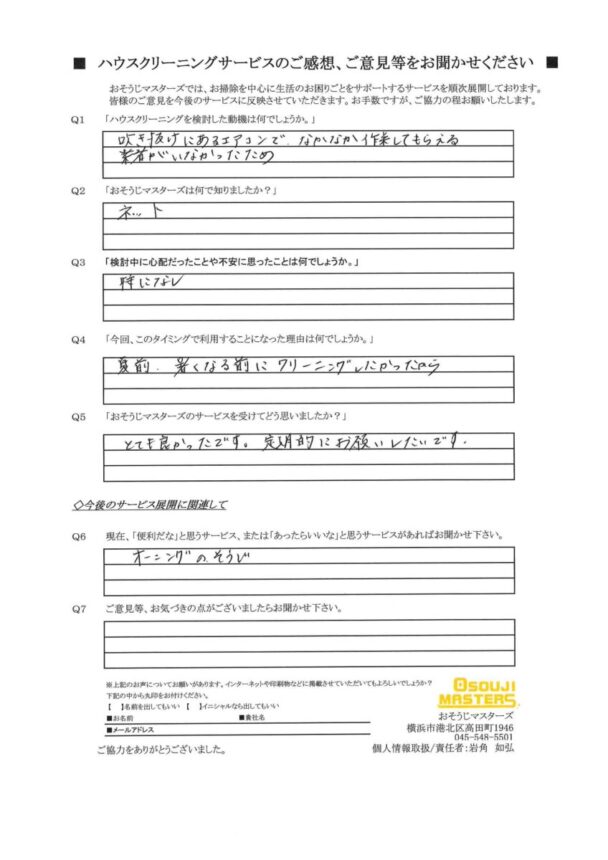 ■ ハウスクリーニングサービスのご感想、ご意見等をお聞かせください ■
おそうじマスターズでは、お掃除を中心に生活のお困りごとをサポートするサービスを順次展開しております。
皆様のご意見を今後のサービスに反映させていただきます。お手数ですが、ご協力の程お願いしたします。
Q1 「ハウスクリーニングを検討した動機は何でしょうか。」
吹き抜けにあるエアコンで、なかなか作業してもらえる
業者がいなかったため
Q2 「おそうじマスターズは何で知りましたか？」
ネット
Q3 「検討中に心配だったことや不安に思ったことは何でしょうか。」
特になし
Q4 「今回、このタイミングで利用することになった理由は何でしょうか。」
夏前、暑くなる前にクリーニングしたかったから
Q5 「おそうじマスターズのサービスを受けてどう思いましたか？」
とても良かったです。定期的にお願いしたいです。
◇今後のサービス展開に関連して
Q6 現在、「便利だな」と思うサービス、または「あったらいいな」と思うサービスがあればお聞かせ下さい。
オーニングのそうじ
Q7 ご意見等、お気づきの点がございましたらお聞かせ下さい。
※上記のお声についてお願いがあります。インターネットや印刷物などに掲載させていただいてもよろしいでしょうか？
下記の中から丸印をお付けください。
【 】名前を出してもいい 【 】イニシャルなら出してもいい
■お名前 ■貴社名
■メールアドレス
ご協力をありがとうございました。
OSOUJI
MASTERS
おそうじマスターズ
横浜市港北区高田町1946
045-548-5501
個人情報取扱/責任者:岩角 如弘